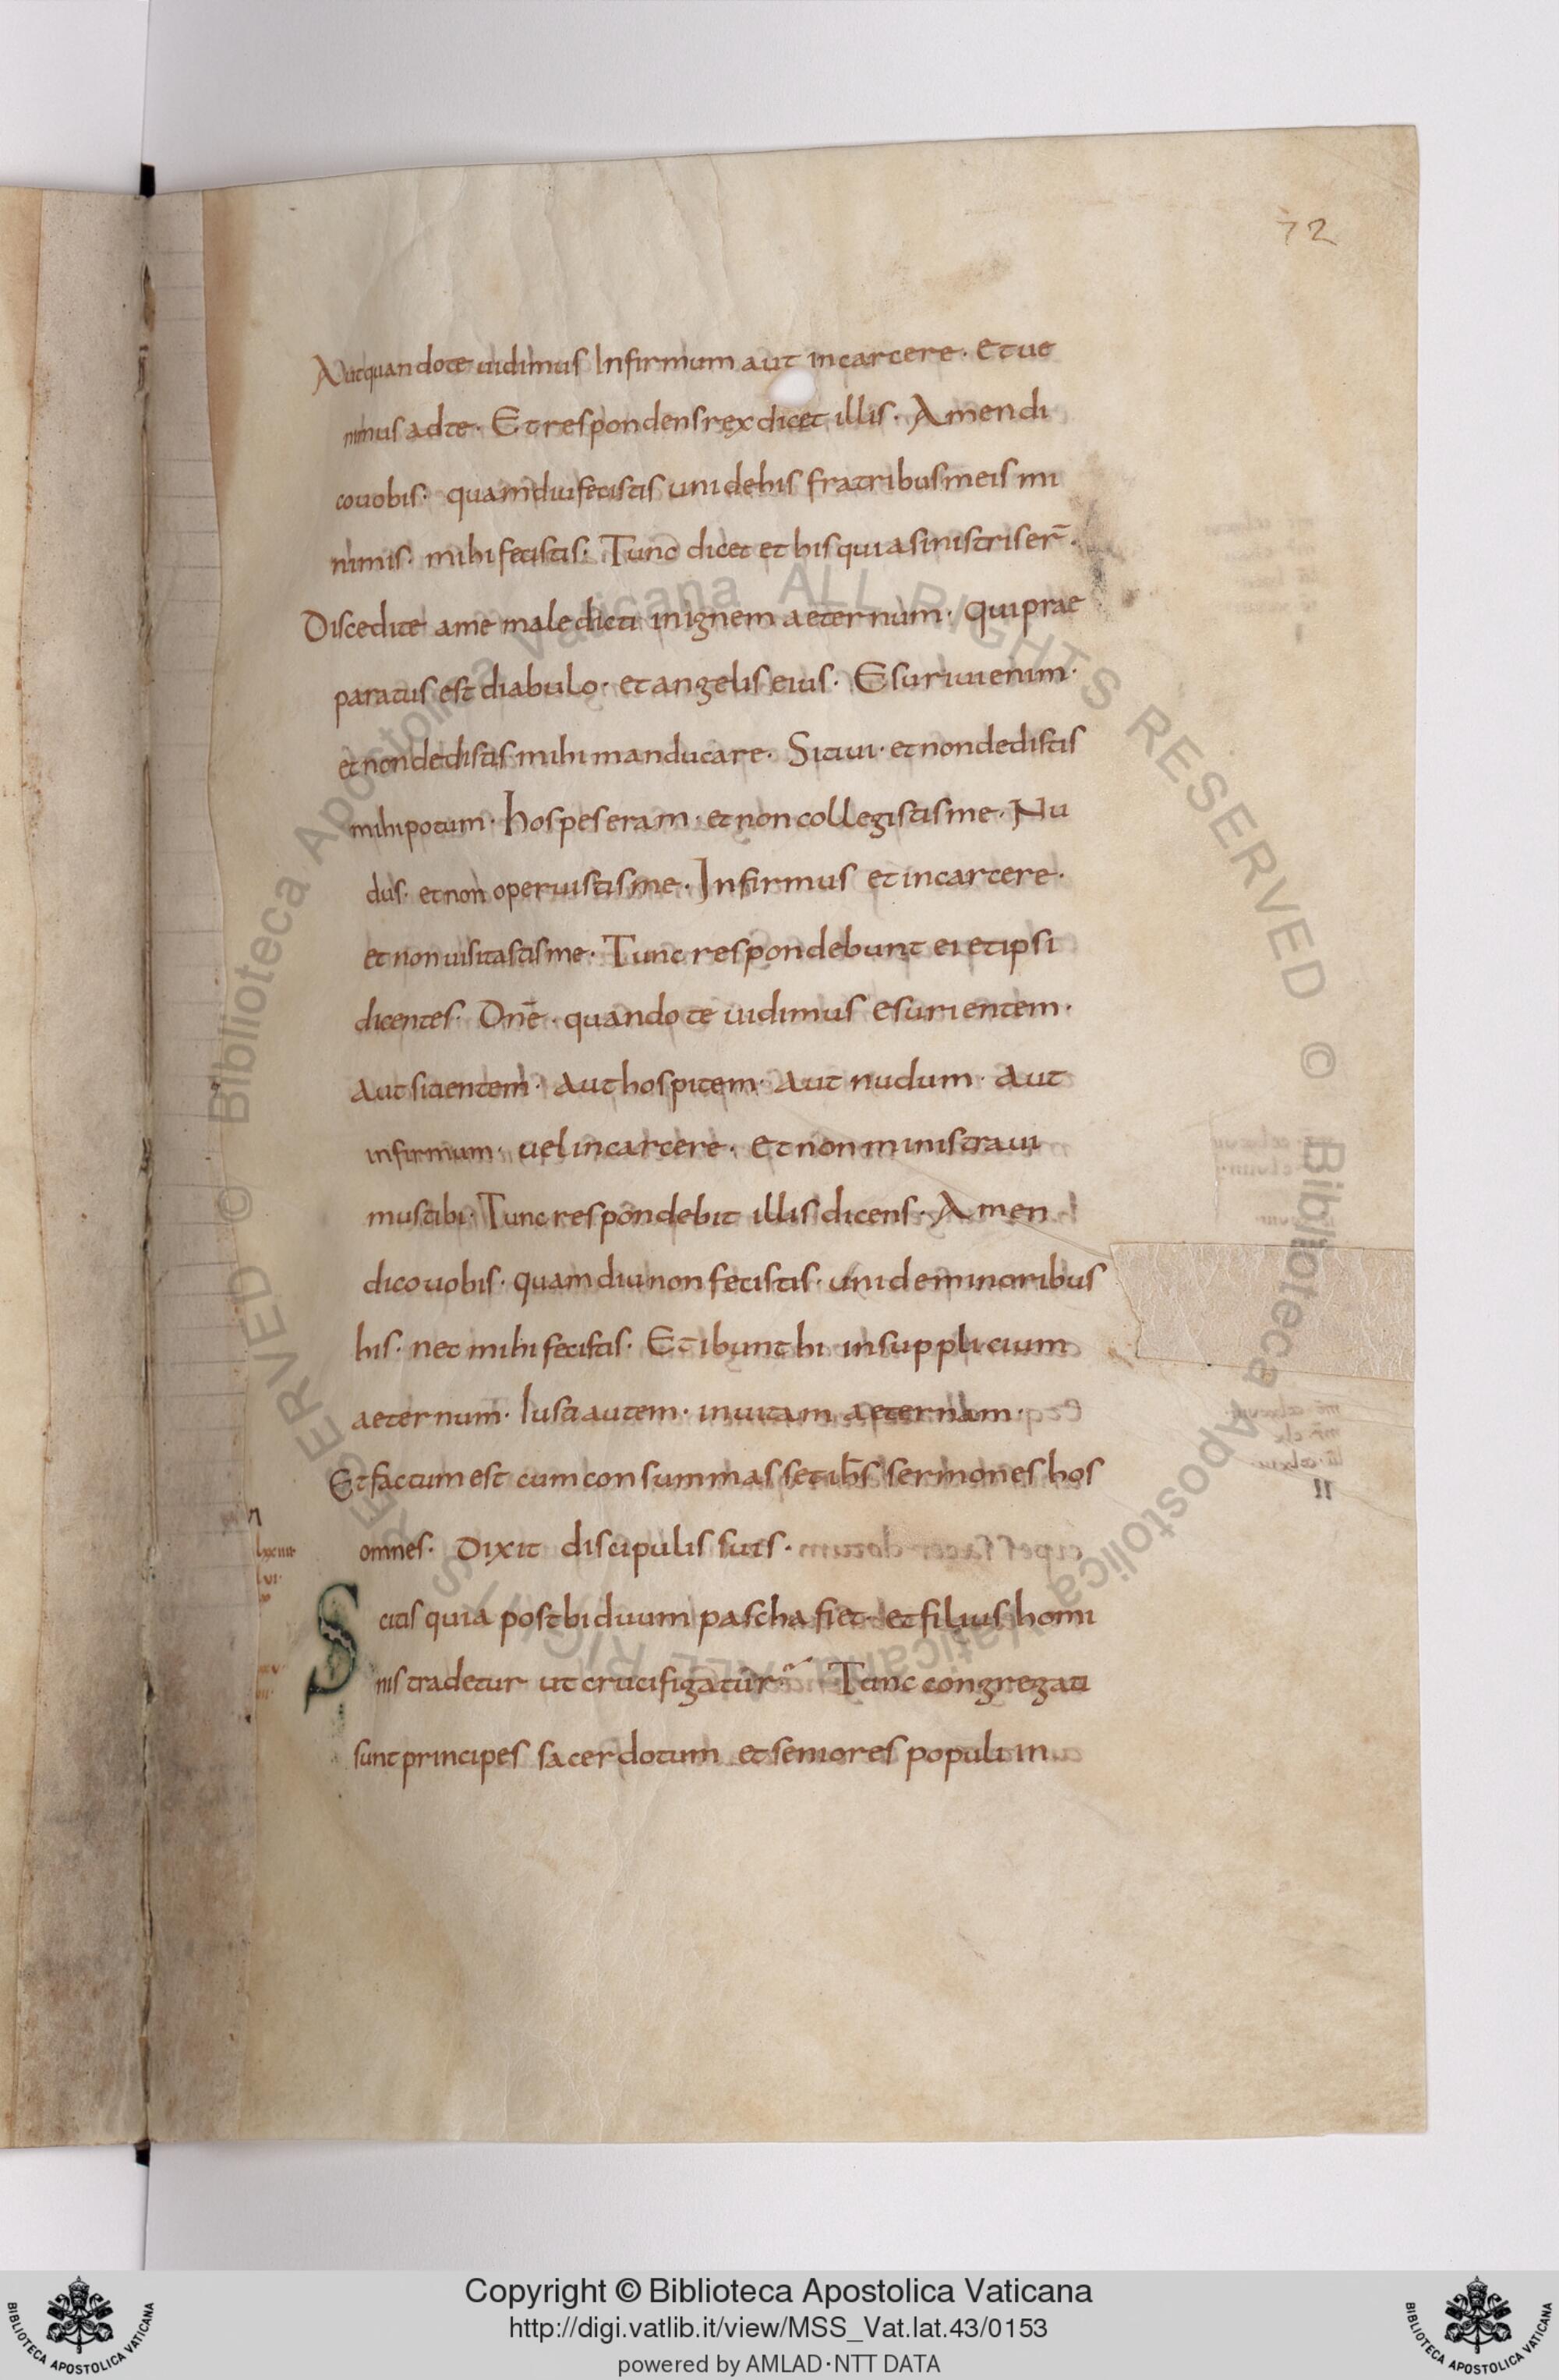 72
Aut quando te uidimus Infirmum aut in carcere · et ue
nimus ad te · Et respondens rex dicet illis · Amen di
co uobis · quamdiu fecistis uni de his fratribus meis mi
nimis · mihi fecistis · Tunc dicet et his qui a sinistris er̄ ·
Discedite a me maledicti in ignem aeternum · qui prae
paratus est diabulo · et angelis eius · Esuriui enim ·
et non dedistis mihi manducare · Sitiui · et non dedistis
mihi potum · hospes eram · et non collegistis me · Nu
dus · et non operuistis me · Infirmus et in carcere ·
et non uisitastis me · Tunc respondebunt ei et ipsi
dicentes · Dnē · quando te uidimus esurientem ·
aut sitientem · aut hospitem · aut nudum · aut
infirmum · uel in carcere · et non ministraui
mus tibi · Tunc respondebit illis dicens · Amen
dico uobis · quamdiu non fecistis · uni de minoribus
his · nec mihi fecistis · Et ibunt hi in supplicium
aeternum · Iusti autem · in uitam aeternam ·
Et factum est cum consummasset ih̄s sermones hos
omnes · Dixit discipulis suis ·
Scitis quia post biduum pascha fiet · et filius homi
nis tradetur ut crucifigatur · Tunc congregati
sunt principes sacerdotum et seniores populi in
Copyright © Biblioteca Apostolica Vaticana
http://digi.vatlib.it/view/MSS_Vat.lat.43/0153
powered by AMLAD·NTT DATA
BIBLIOTECA APOSTOLICA VATICANA
BIBLIOTECA APOSTOLICA VATICANA
© Biblioteca Apostolica Vaticana ALL RIGHTS RESERVED © Biblioteca Apostolica Vaticana ALL RIGHTS RESERVED